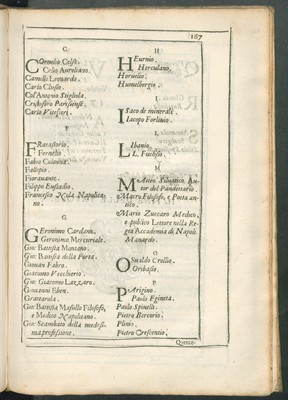 167
C
COrnelio Celso.
Celio Aureliano.
Camillo Leonardo.
Carlo Clusio.
Col'Antonio Stigliola.
Cristoforo Parisiense.
Carlo
F
FRacastorio.
Fernelio
Fabio Colonna.
Falopio
Fioravante.
Filippo
Francesco Napolita
no.
G
GEronimo Cardano.
Geronimo Mercuriale.
Gio: Battista Montano.
Gio: Battista della Porta.
Giovan Fabro.
Giacomo Vecchierio.
Gio: Giacomo
Giovanni Eben.
Gio: Battista Masullo Filosofo,
e Medico Napolitano.
Gio: Scambato della medesi-
ma professione.
H
HEurnio.
Herculano.
Hornelio.
Humelbergio.
I
ISaco de minerali.
Iacopo Forlivio.
L
LIbanio.
L. Fuchsio.
M
MAtteo Silvatico, Au-
tor del Pandettario.
Macro Filosofo, e Poeta an-
tico.
Mario Zuccaro Medico,
e publico Lettore nella Re-
gia Accademia di Napoli.
Manardo.
O
OSualdo Crollio.
Oribasio.
P
PArigino.
Paulo Egineta.
Paulo Spinelli.
Pietro Bercorio.
Plinio.
Pietro Crescentio.